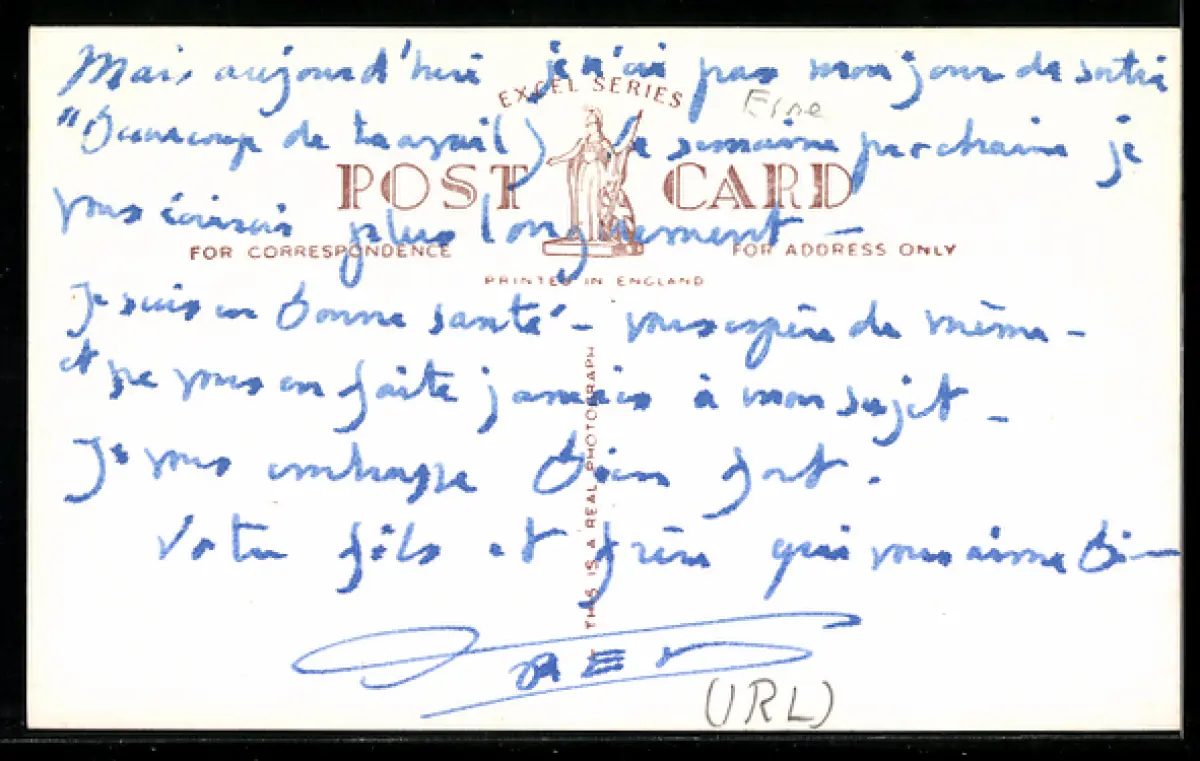 Mais aujourd'hui je n'ai pas mon jour de sortie
EXCEL SERIES
"Beaucoup de travail) La semaine prochaine je
POST CARD
vous écrirais plus longuement –
FOR CORRESPONDENCE FOR ADDRESS ONLY
PRINTED IN ENGLAND
Je suis en bonne santé – vous espère de même –
et ne vous en faite jamais à mon sujet –
Je vous embrasse bien fort.
Votre fils et frère qui vous aime bien
THIS IS A REAL PHOTOGRAPH
(IRL)